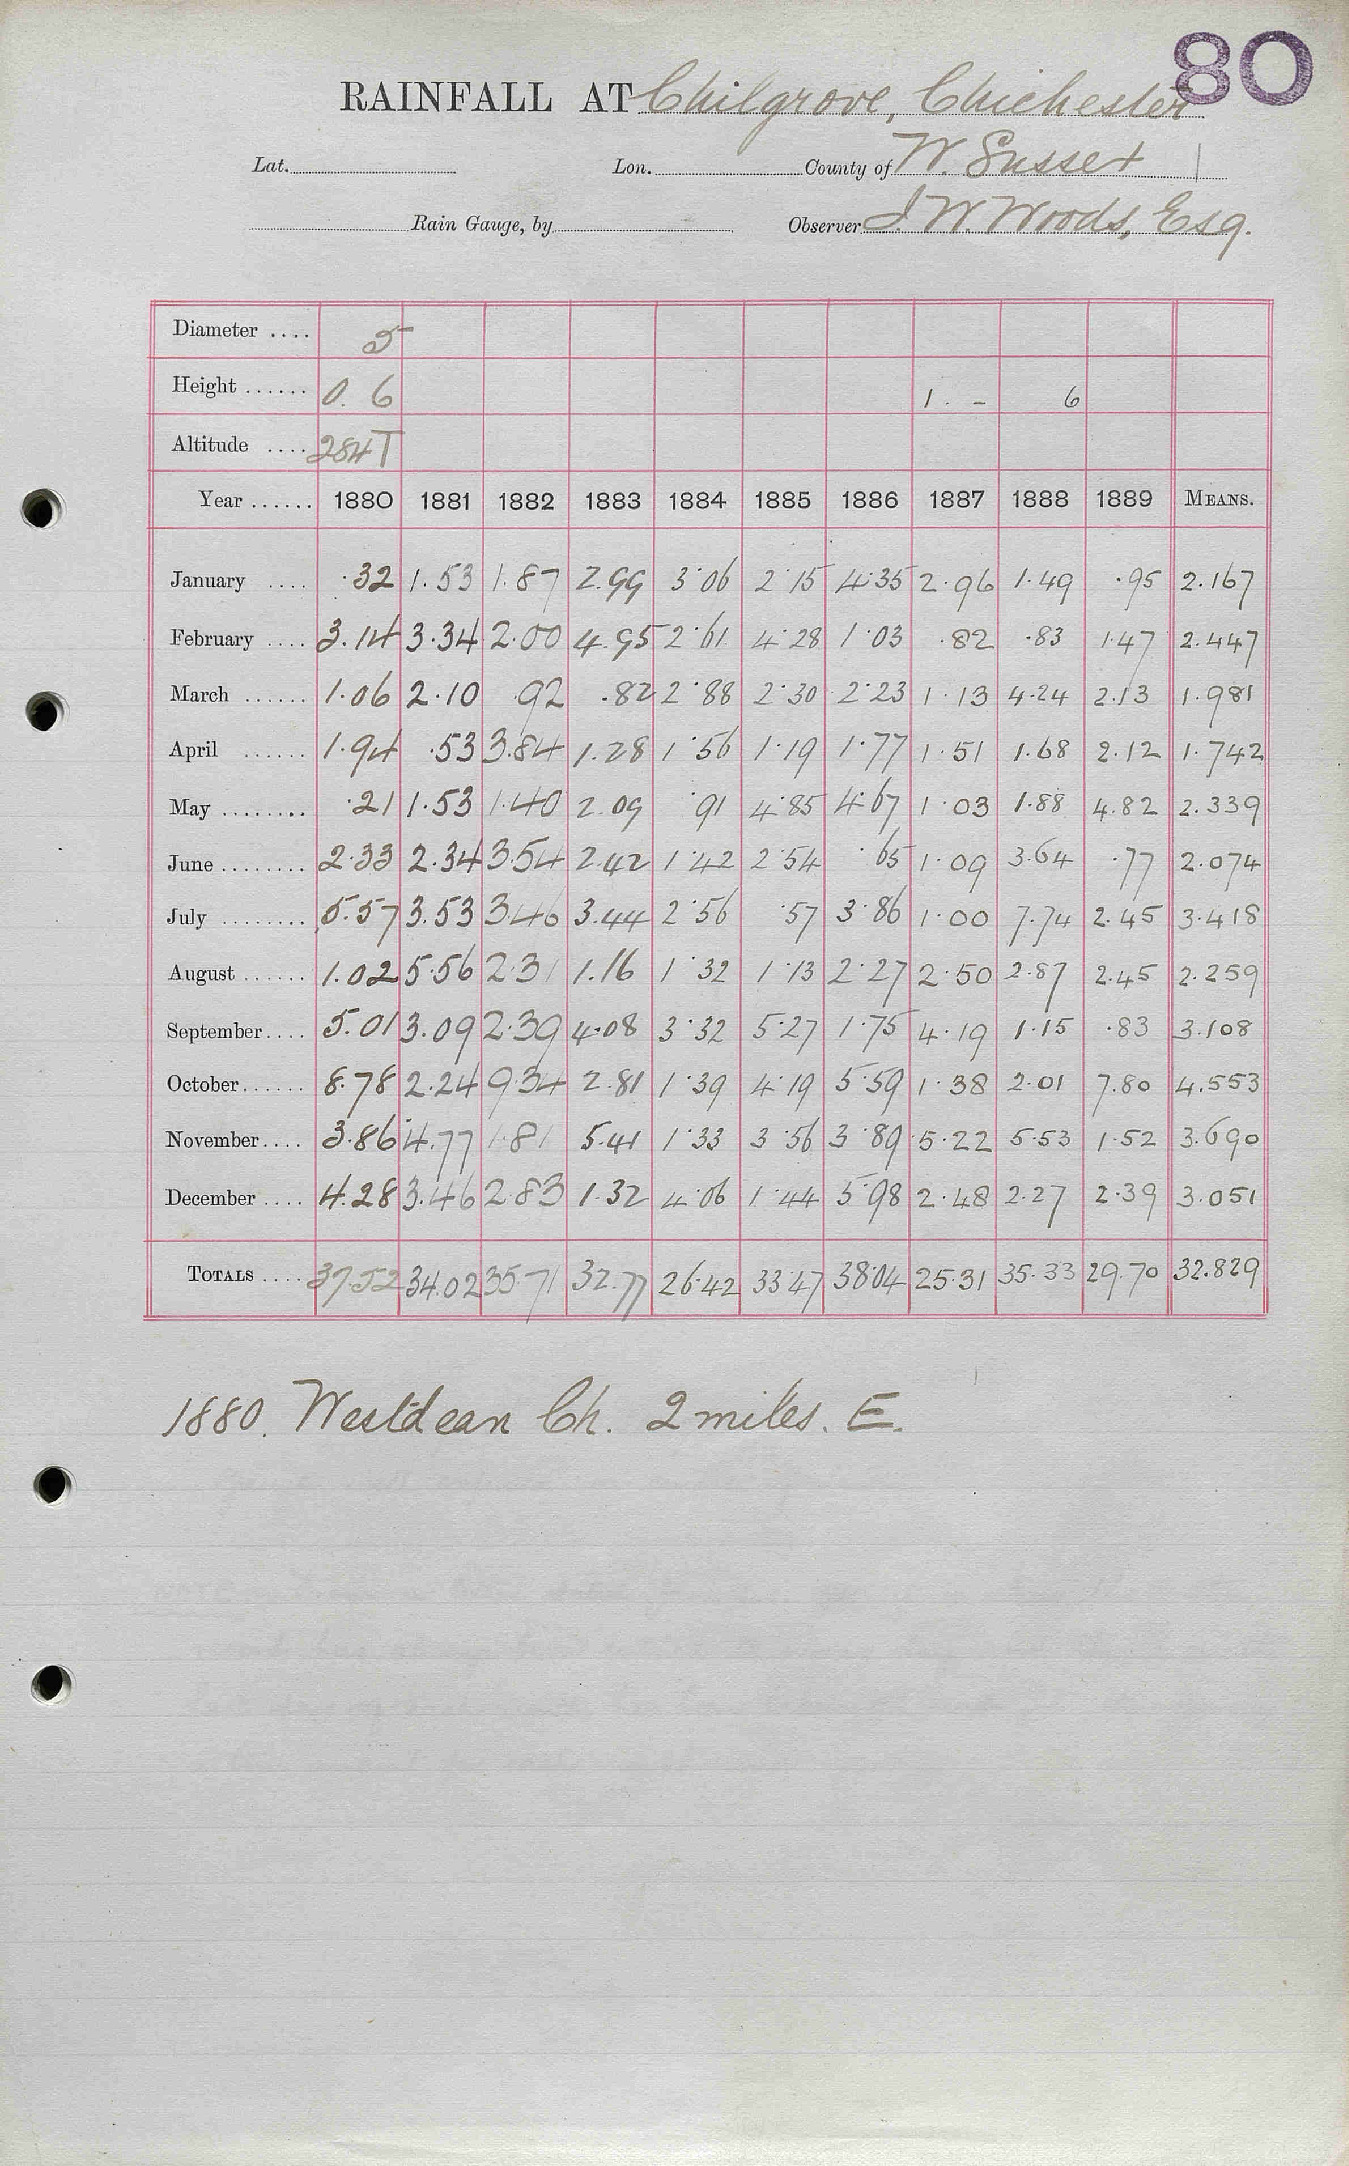 80
RAINFALL AT Chilgrove, Chichester
Lat. Lon. County of W. Sussex
Rain Gauge, by Observer J. W. Woods, Esq.
Diameter .... 5
Height ...... 0. 6 1. - 6
Altitude .... 284T
Year ...... 1880 1881 1882 1883 1884 1885 1886 1887 1888 1889 MEANS.
January .... .32 1.53 1.87 2.99 3.06 2.15 4.35 2.96 1.49 .95 2.167
February .... 3.14 3.34 2.00 4.95 2.61 4.28 1.03 .82 .83 1.47 2.447
March ...... 1.06 2.10 .92 .82 2.88 2.30 2.23 1.13 4.24 2.13 1.981
April ...... 1.94 .53 3.84 1.28 1.56 1.19 1.77 1.51 1.68 2.12 1.742
May ........ .21 1.53 1.40 2.09 .91 4.85 4.67 1.03 1.88 4.82 2.339
June ........ 2.33 2.34 3.54 2.42 1.42 2.54 .65 1.09 3.64 .77 2.074
July ........ 5.57 3.53 3.46 3.44 2.56 .57 3.86 1.00 7.74 2.45 3.418
August ...... 1.02 5.56 2.31 1.16 1.32 1.13 2.27 2.50 2.87 2.45 2.259
September .... 5.01 3.09 2.39 4.08 3.32 5.27 1.75 4.19 1.15 .83 3.108
October ...... 8.78 2.24 9.34 2.81 1.39 4.19 5.59 1.38 2.01 7.80 4.553
November .... 3.86 4.77 1.81 5.41 1.33 3.56 3.89 5.22 5.53 1.52 3.690
December .... 4.28 3.46 2.83 1.32 4.06 1.44 5.98 2.48 2.27 2.39 3.051
TOTALS .... 37.52 34.02 35.71 32.77 26.42 33.47 38.04 25.31 35.33 29.70 32.829
1880. Westdean Ch. 2 miles. E.